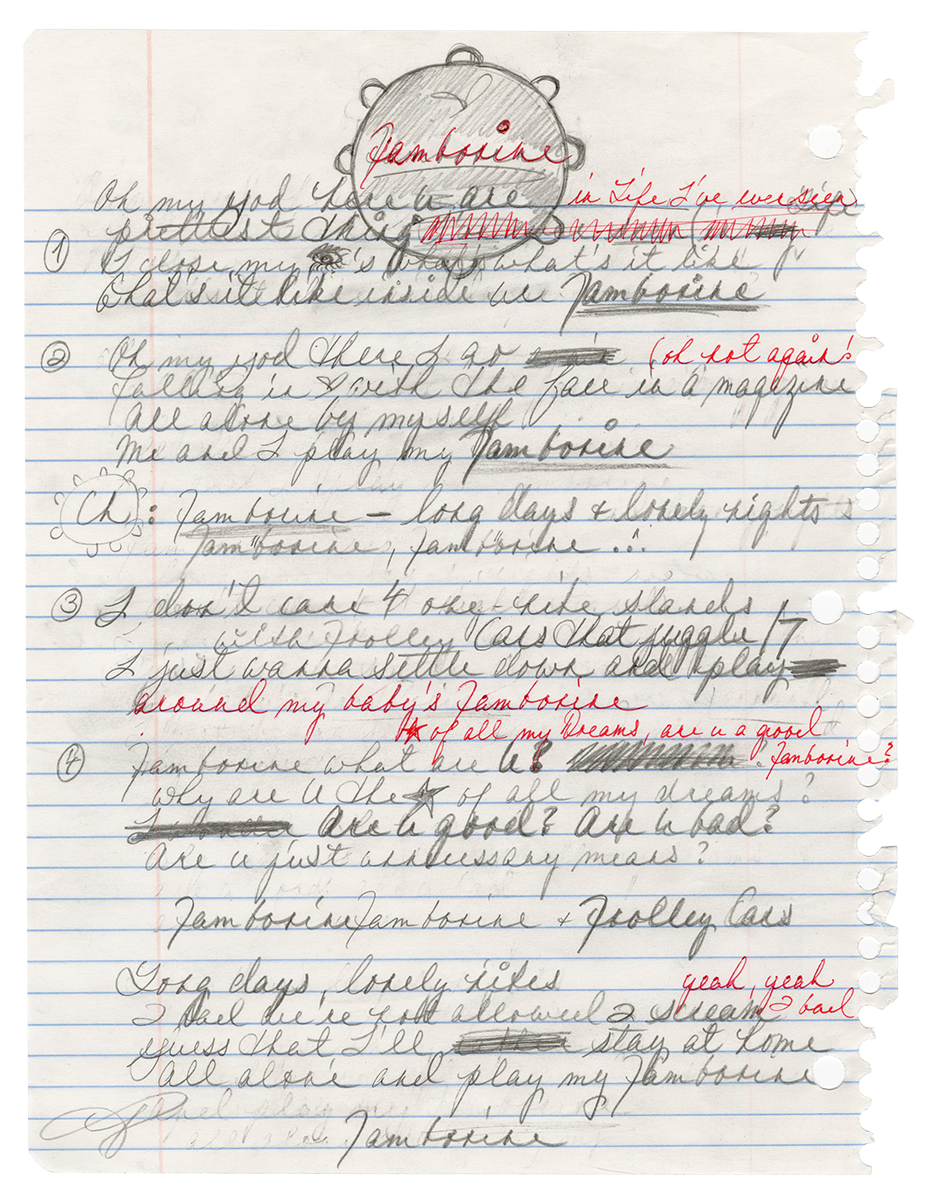 Tamborine
Oh my god here u are in Life I've ever seen
prettiest thing
① I close my 's what's it like
What's it like inside ur Tamborine
② Oh my god there I go (oh not again!
falling in ♥ with the face in a magazine
all alone by myself
Me and I play my Tamborine
Ch: Tamborine – long days & lonely nights
Tamborine, Tamborine ...
③ I don't care 4 one-nite stands
with Trolley Cars that juggle 17
I just wanna settle down and play
around my baby's Tamborine
★ of all my Dreams, are u a good
④ Tamborine what are u? Tamborine?
Why are U the ★ of all my dreams?
Are u good? Are u bad?
Are u just a necessary means?
Tamborine Tamborine & Trolley Cars
Long days, lonely nites yeah, yeah
2 bad we're not allowed 2 scream 2 bad
guess that I'll stay at home
all alone and play my Tamborine
Tamborine